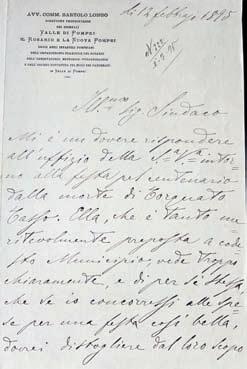 AVV. COMM. BARTOLO LONGO
DIRETTORE PROPRIETARIO
DEI GIORNALI
VALLE DI POMPEI
IL ROSARIO E LA NUOVA POMPEI
DELL'ORFANOTROFIO FEMMINILE DEL ROSARIO
IN VALLE DI POMPEI
li 12 febbraio 1895
Ill.mo Sig. Sindaco
Mi è un dovere rispondere
all'uffizio della S.a V.a intor-
no alla festa pel centenario
dalla morte di Torquato
Tasso. Ella, che è tanto me-
ritevolmente preposta a code-
sto Municipio, vede troppo
chiaramente, e di per sè stessa,
che se io concorressi alle spe-
se per una festa così bella,
dovrei distogliere dal loro scopo